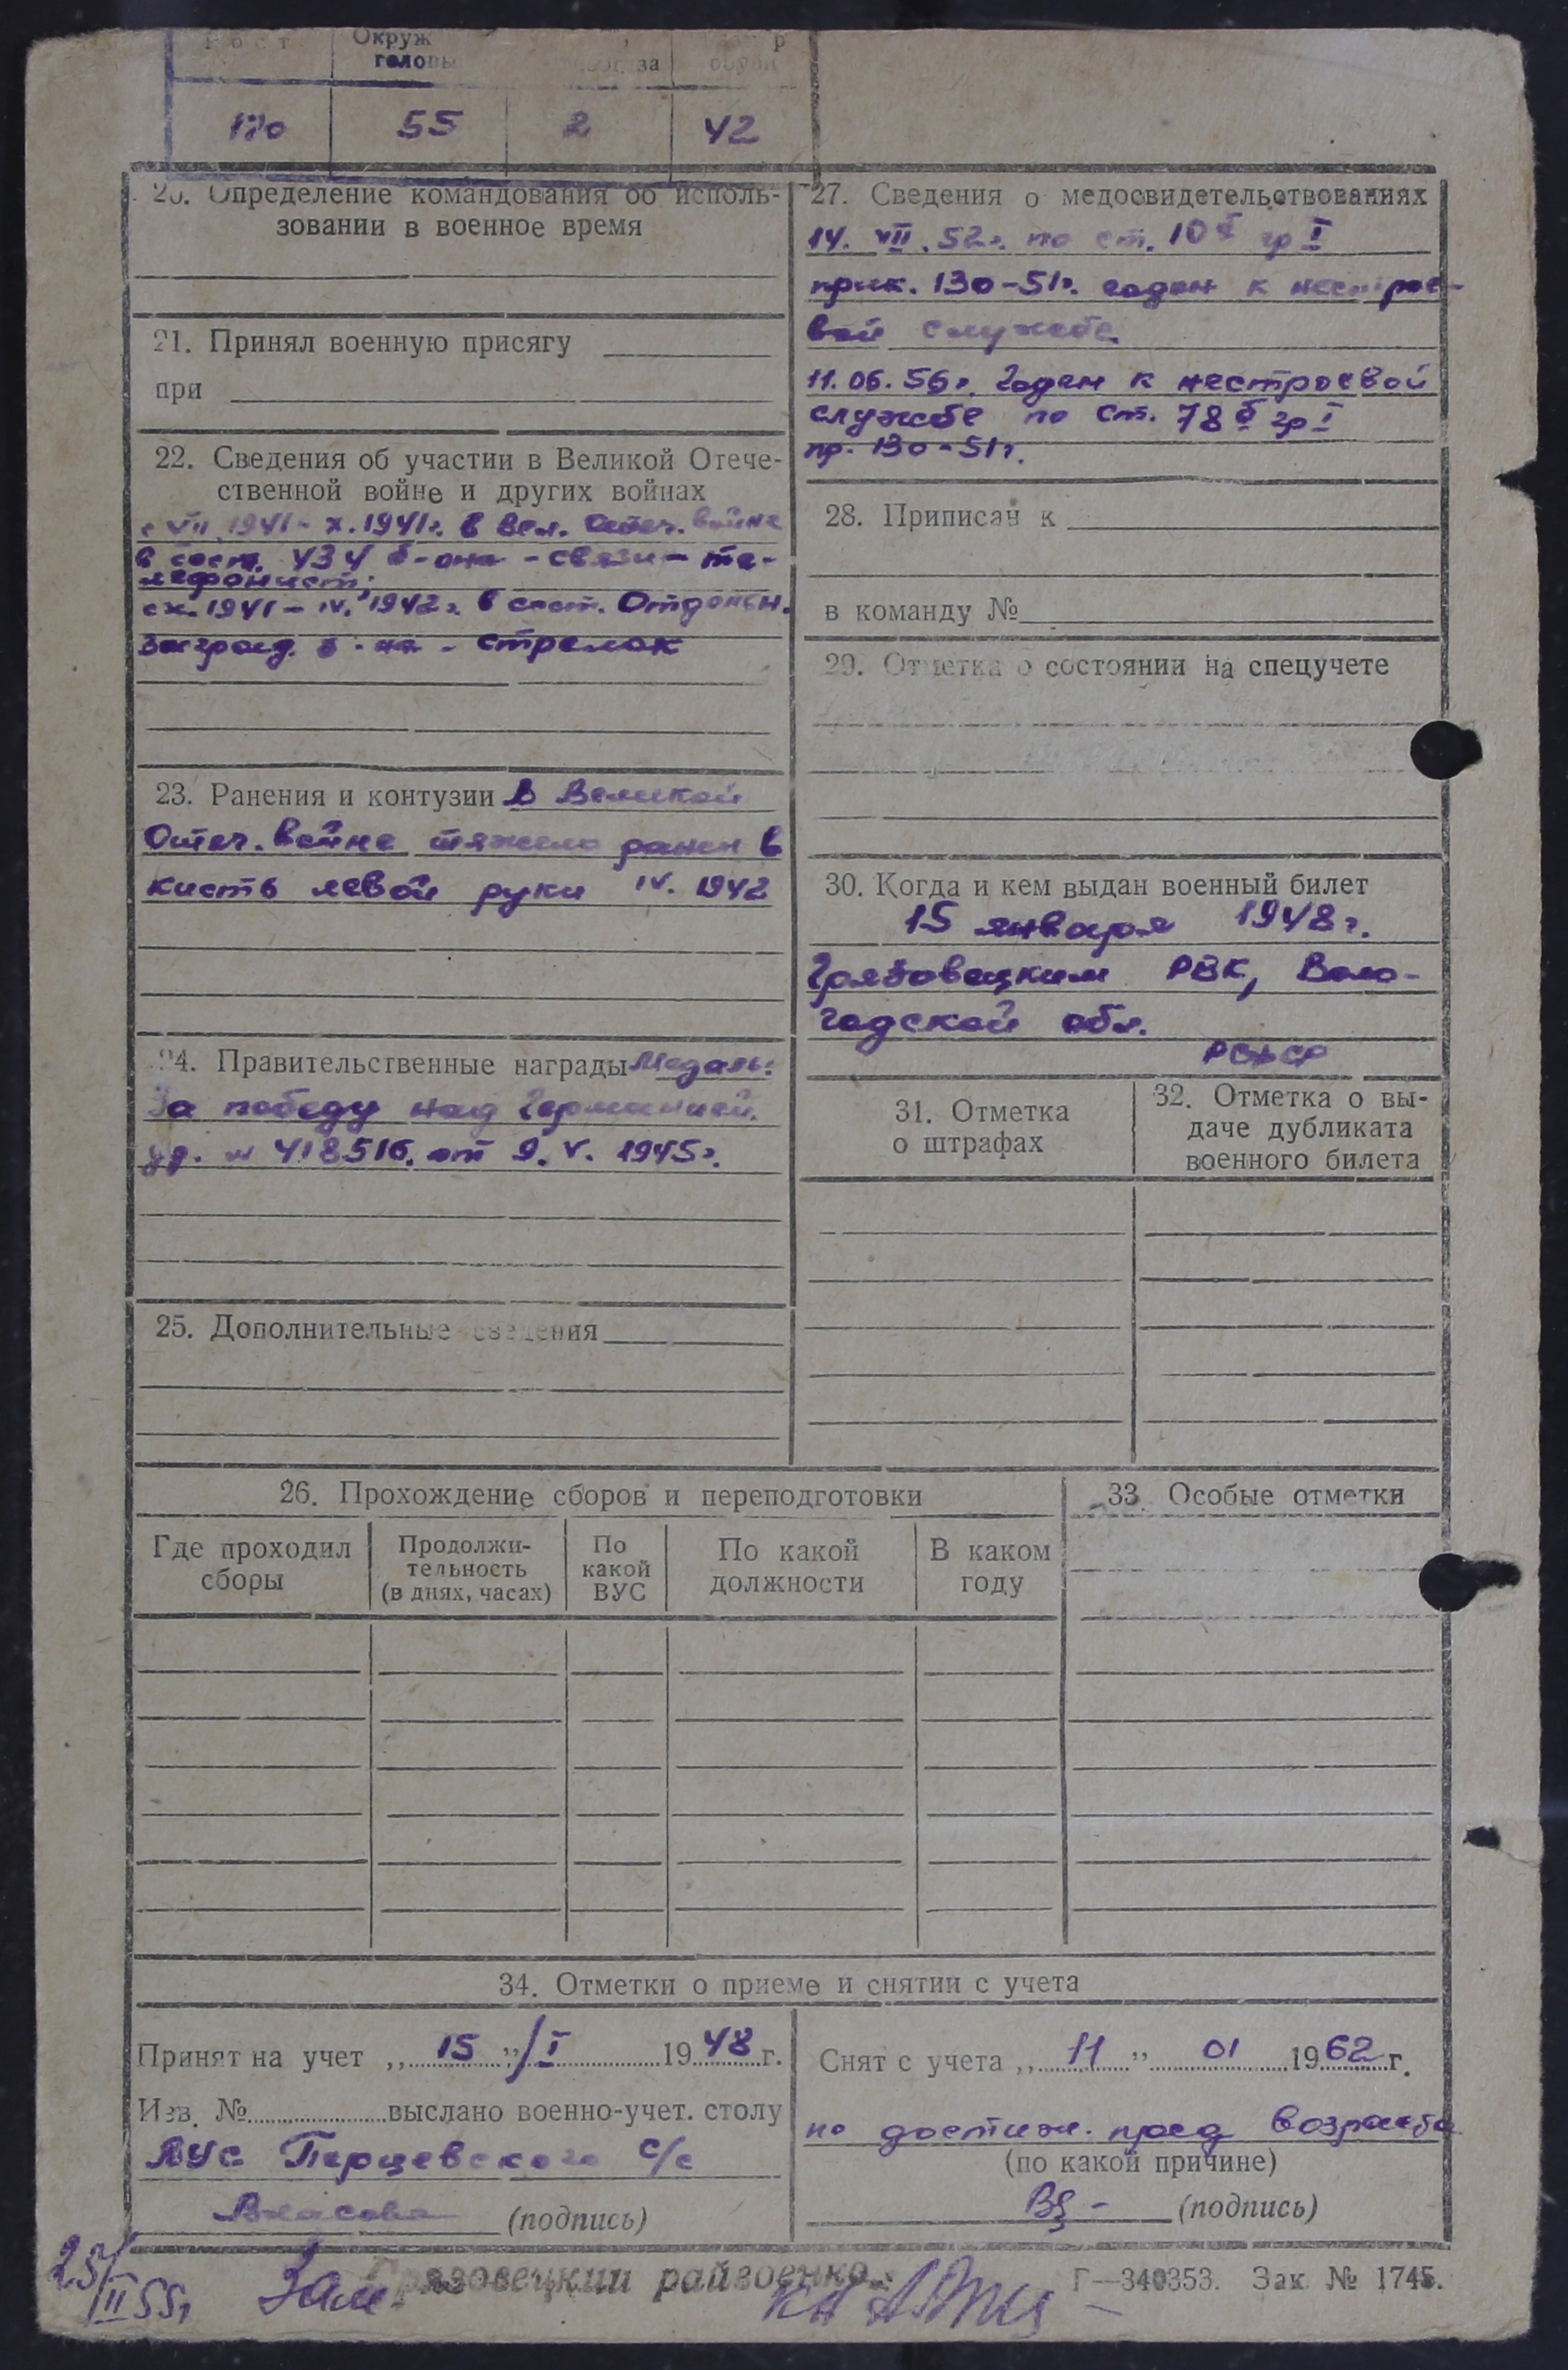 Рост
Окруж
головы
за
170
55
2
42
20. Определение командования об исполь-
зовании в военное время
21. Принял военную присягу
при
22. Сведения об участии в Великой Отече-
ственной войне и других войнах
с VII 1941 - X. 1941г. в Вел. Отеч. войне
в сост. 434 б-она - связи - те-
лефонист.
с X. 1941 - IV. 1942г. в сост. Отдельн.
Заград. б-на - стрелок
23. Ранения и контузии В Великой
Отеч. войне тяжело ранен в
кисть левой руки IV. 1942
24. Правительственные награды Медаль:
За победу над Германией.
уд. № 418516. от 9. V. 1945г.
25. Дополнительные сведения
27. Сведения о медосвидетельствованиях
14. VII. 52г. по ст. 10 гр I
прик. 130-51г. годен к нестрое-
вой службе.
11.06.56г. Годен к нестроевой
службе по ст. 78 б гр I
пр. 130-51г.
28. Приписан к
в команду №
29. Отметка о состоянии на спецучете
30. Когда и кем выдан военный билет
15 января 1948г.
Грязовецким РВК, Воло-
годской обл.
РСФСР
31. Отметка
о штрафах
32. Отметка о вы-
даче дубликата
военного билета
26. Прохождение сборов и переподготовки
Где проходил
сборы
Продолжи-
тельность
(в днях, часах)
По
какой
ВУС
По какой
должности
В каком
году
33. Особые отметки
34. Отметки о приеме и снятии с учета
Принят на учет „15"/I 1948г.
Изв. № выслано военно-учет. столу
ВУС Перцевского с/с
Власова (подпись)
Снят с учета „11" 01 1962г.
по достиж. пред возраста
(по какой причине)
(подпись)
25/II 55г
Зам. Грязовецкий райвоенко
Г—340353. Зак № 1745.